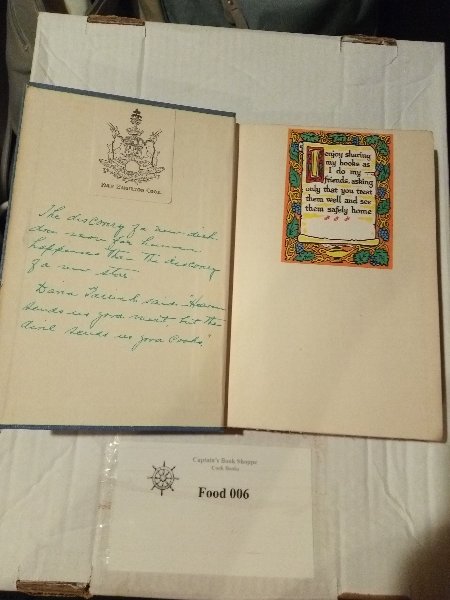 The discovery of a new dish
does more for human
happiness than the discovery
of a new star
sends us good meat, but the
devil sends us good Cooks."
I enjoy sharing
my books as
I do my
friends, asking
only that you treat
them well and see
them safely home
Captain's Book Shoppe
Cook Books
Food 006